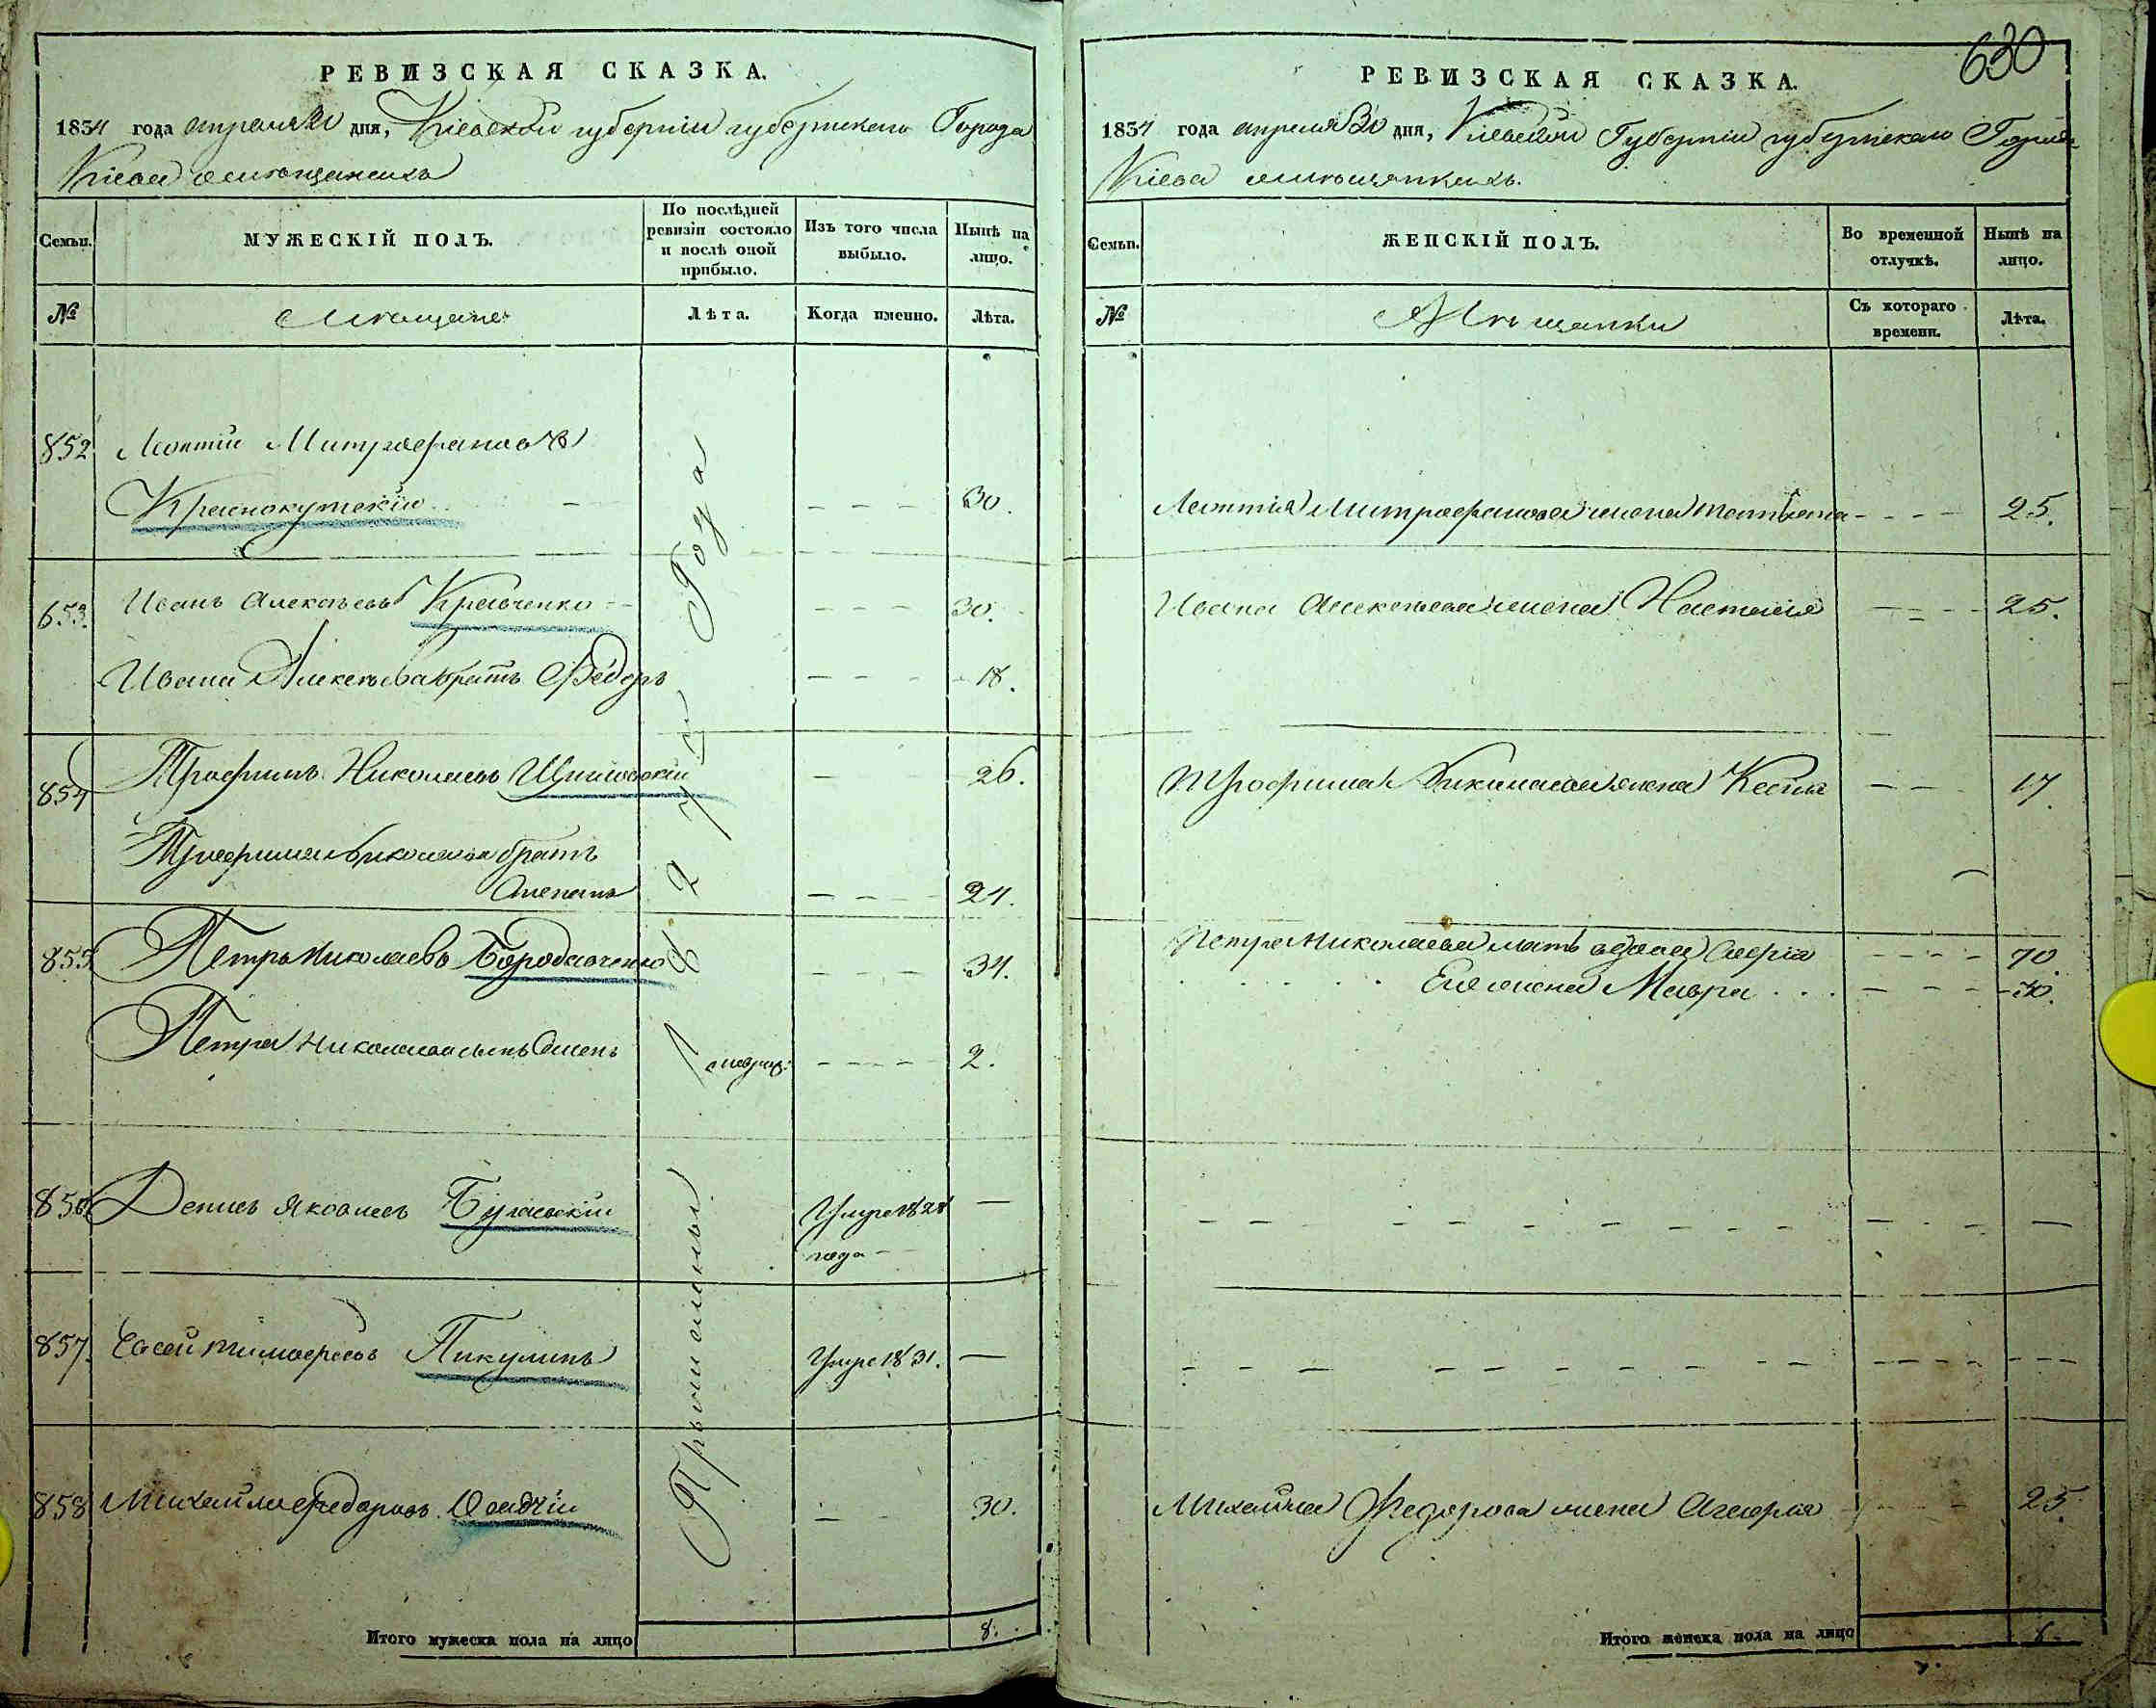 РЕВИЗСКАЯ СКАЗКА.
1834 года апреля 30 дня, Кіевской губерніи губернскаго Города
Кіева о мѣщанехъ
Семьи.
МУЖЕСКІЙ ПОЛЪ.
По послѣдней ревизіи состояло и послѣ оной прибыло.
Изъ того числа выбыло.
Нынѣ на лицо.
№
Мѣщане
Лѣта.
Когда именно.
Лѣта.
852 Леонтій Митрофановъ
Краснокутскій 30.
853. Иванъ Алексѣевъ Кравченко 30.
Ивана Алексѣева братъ Ѳедоръ 18.
854 Трофимъ Николаевъ 26.
Трофима Николаева братъ
Степанъ 24.
855 Петръ Николаевъ Бородавченко 34.
Петра Николаева сынъ 2.
856 Денисъ Яковлевъ Умре 1828
года
857. Евсей Тимофеевъ Пикулинъ Умре 1831.
858 Михайла Федоровъ Осадчій 30.
Года
Итого мужеска пола на лицо 8.
630
РЕВИЗСКАЯ СКАЗКА.
1834 года апреля 30 дня, Кіевской Губерніи губернскаго Города
Кіева о мѣщанкахъ.
Семьи.
ЖЕНСКІЙ ПОЛЪ.
Во временной отлучкѣ.
Нынѣ на лицо.
№
Мѣщанки
Съ котораго времени.
Лѣта.
Леонтія Митрофанова жена Татьяна 25.
Ивана Алексѣева жена Настасія 25.
Трофима Николаева жена Ксенія 17.
Петра Николаева мать вдова Софія 70.
Его жена Мавра 30.
Михайла Федорова жена Агафія 25.
Итого женска пола на лицо 6.